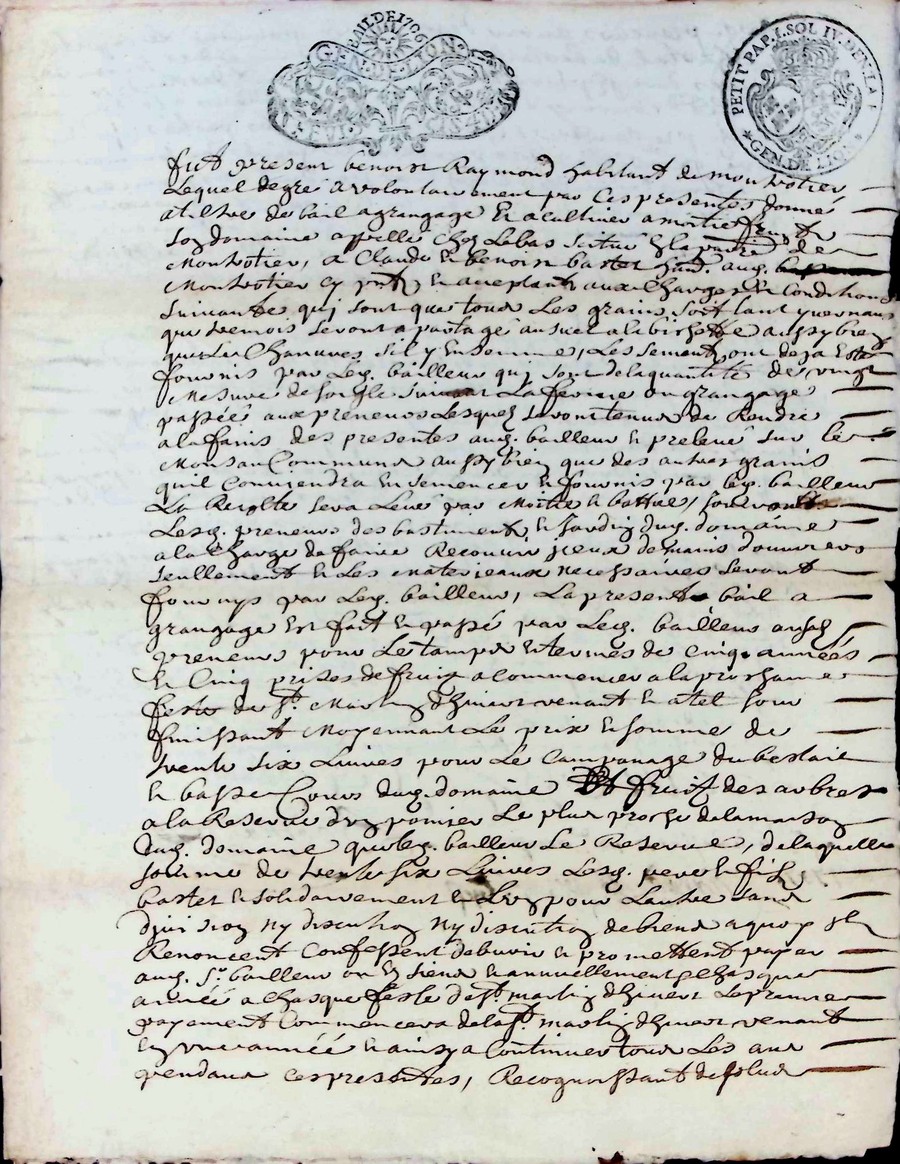 BAIL DE 1706
GEN. DE LION
PETIT PAP. I. SOL IV. DEN. LA F.
GEN. DE LION
fut present benoist Raymond habitant de montrotier
Lequel de gre a volontairement par Ces presentes donné
a tiltre de bail a grangage Et a cultiver a moitie fruit
son domaine appellé Chez Lebas scitué En la parr. de
Montrotier, a Claude Et benoist bastet aud.
Montrotier cy pnts Et acceptants aux Charges Et Conditions
suivantes qui sont que tous Les grains soit tant yvernaux
que tremois seront a partagé au suel a la bichette aussy bien
que Les Chanvres sil y En seme, Les semens ont deja Esté
fournis par Led. bailleur qui sont de la quantité de vingt
Mesure de soigle suivant La ferme ou grangage
passée aux preneurs Lesquels seront tenus de Rendre
a la fin des presentes aud. bailleur Et prelevé sur le
Monsau Commung aussy bien que des autres grains
quil Conviendra Ensemencer Et fournis par led. bailleur
La Recolte sera Levé par Moitie Et battue,
Lesd. preneurs des bastiments Et fondz dud. domaine
a la Charge de faire Recouvrir jceux de mains douvriers
seullement Et Les Materjeaux necessaires seront
fournys par Led. bailleur, La presente bail a
grangage Est fait Et passé par Led. bailleur ausd.
preneurs pour Le temps Et termes de Cinq années
Et Cinq prises de fruitz a commencer a la prochaine
feste de St. Martin d'hiver venant Et a tel jour
finissant Moyennant Le prix Et somme de
trente six Livres pour Le Campanage du bestail
Et basse Cours dud. domaine Et fruitz des arbres
a la Reserve d'un pomier Le plus proche de la maison
dud. domaine que led. bailleur Se Reserve, de laquelle
somme de trente six Livres Lesd. pere Et fils
bastet Et solidairement Et L'un pour Lautre sans
divission ny discution ny discution de biens a quoy ilz
Renoncent Confessent debvoir Et promettent payer
aud. Sr. bailleur ou Es siens Et annuellement Chasque
année a Chasque feste de St. martin d'hiver Le premier
payement Commencera de la St. martin d'hiver venant
En une année Et ainsy a Continuer tous Les ans
pendant ces presentes, Recognoissant de plus